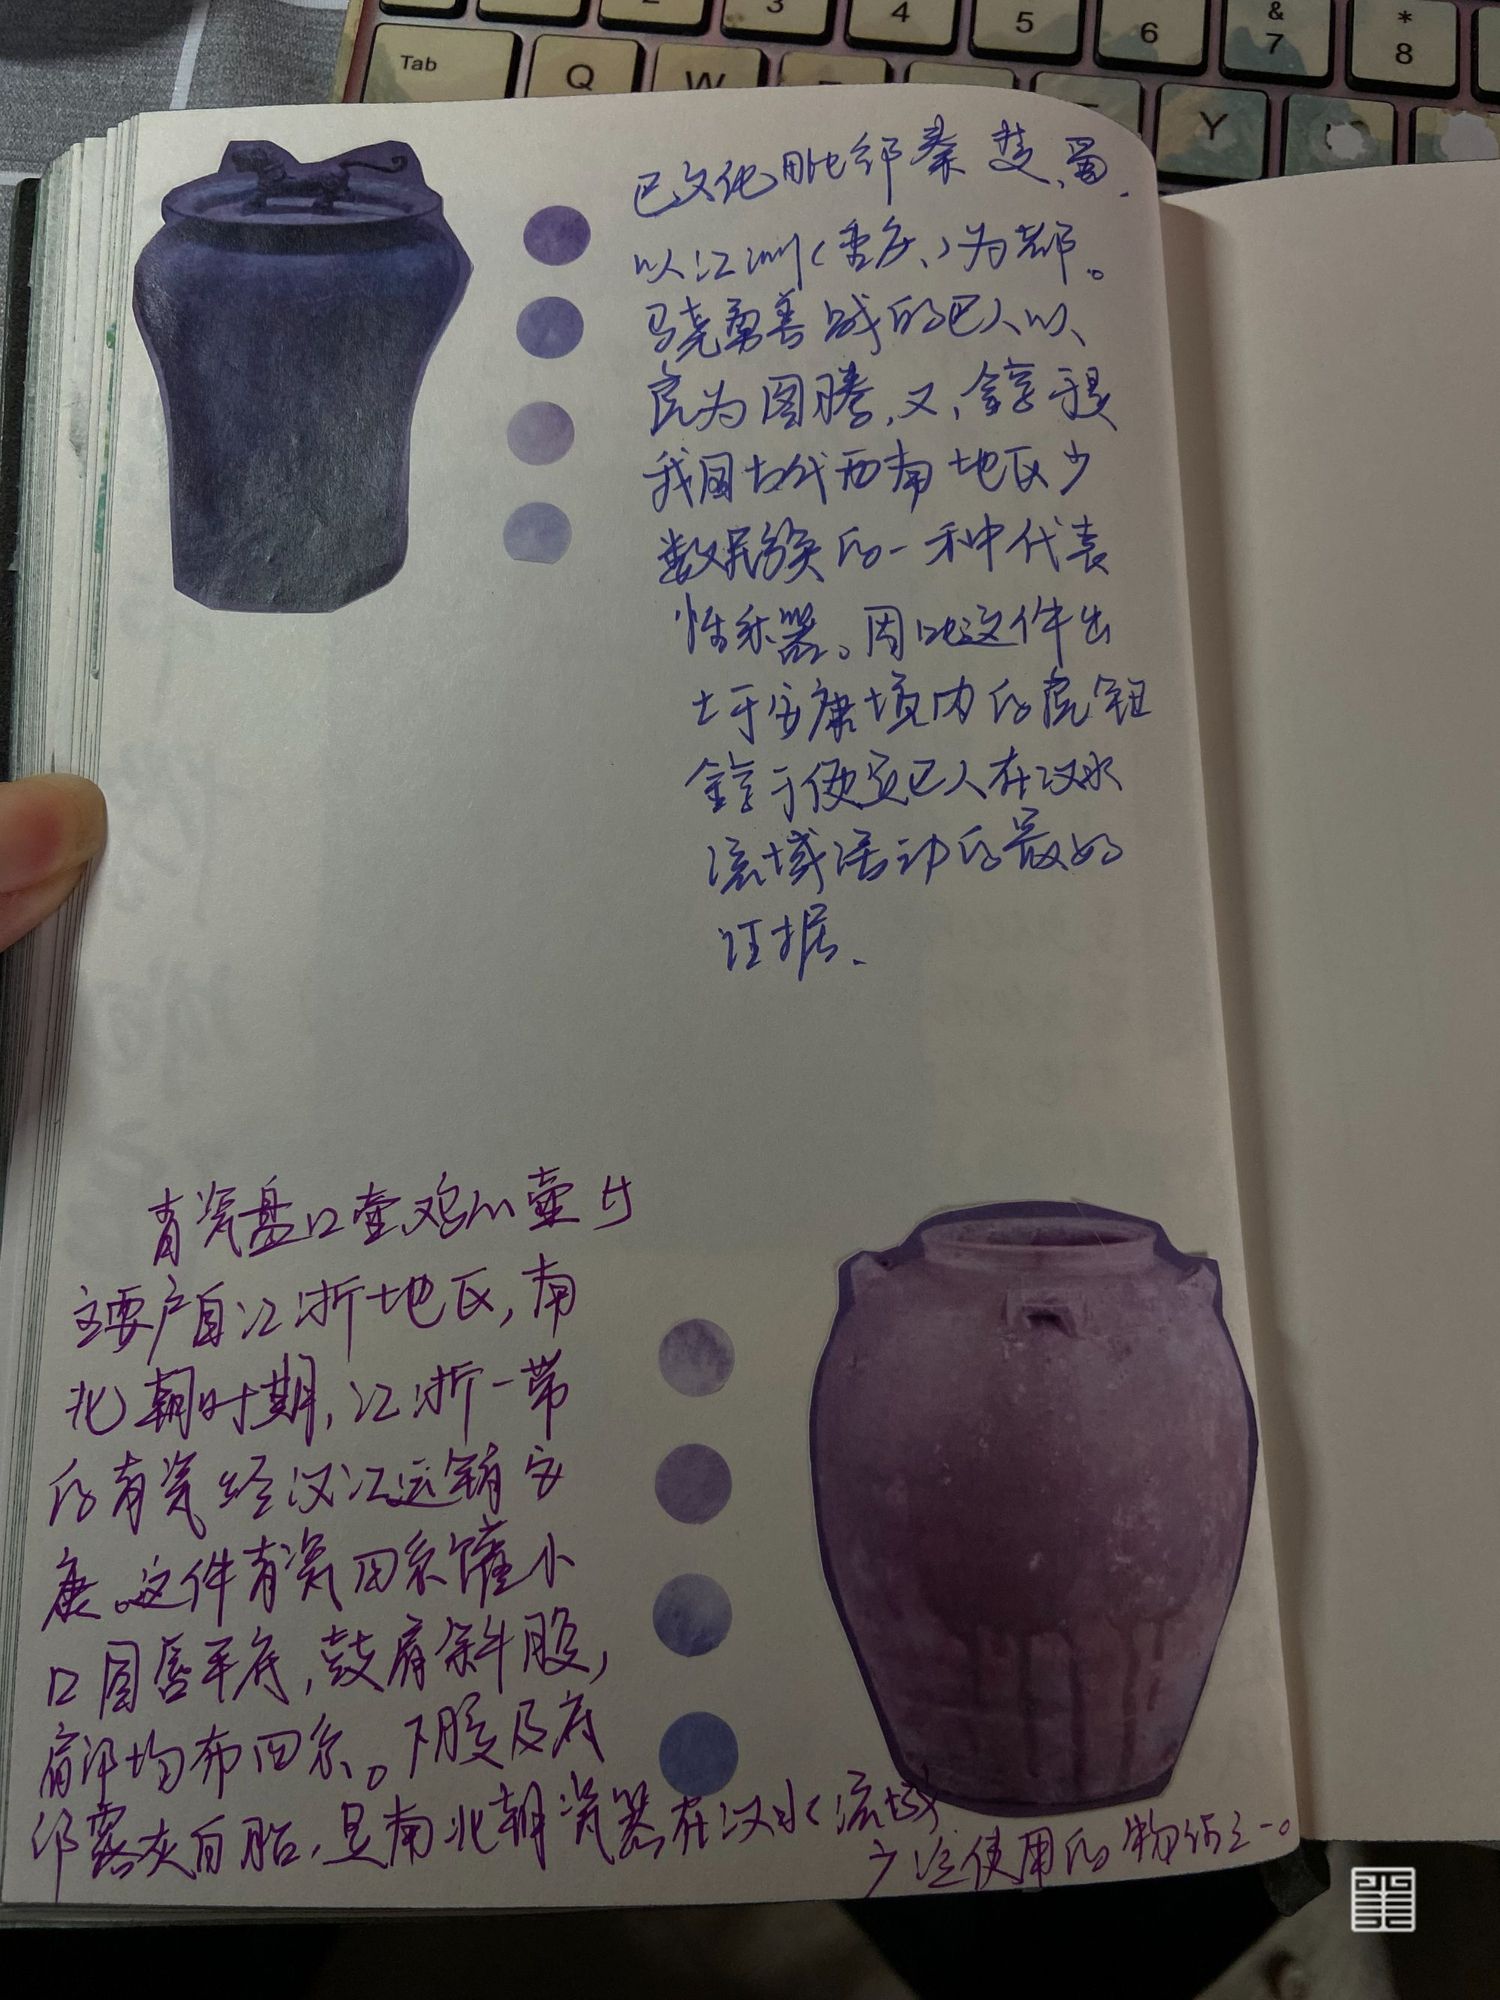 Tab
Q
W
Y
3
4
5
6
&
7
*
8
巴文化毗邻秦、楚、蜀、
以江洲(重庆、)为都。
骁勇善战的巴人以
虎为图腾,又,錞于是
我国古代西南地区少
数民族的一种代表
性乐器。因此这件出
土于安康境内的虎钮
錞于便是巴人在汉水
流域活动的最好
证据、
青瓷盘口壶、鸡首壶
主要产自江浙地区,南
北朝时期,江浙一带
的青瓷经汉江运销安
康。这件青瓷四系罐小
口圆唇平底,鼓肩斜腹,
肩部均布四系。下腹及底
部露灰白胎,是南北朝瓷器在汉水流域
广泛使用的物证之一。